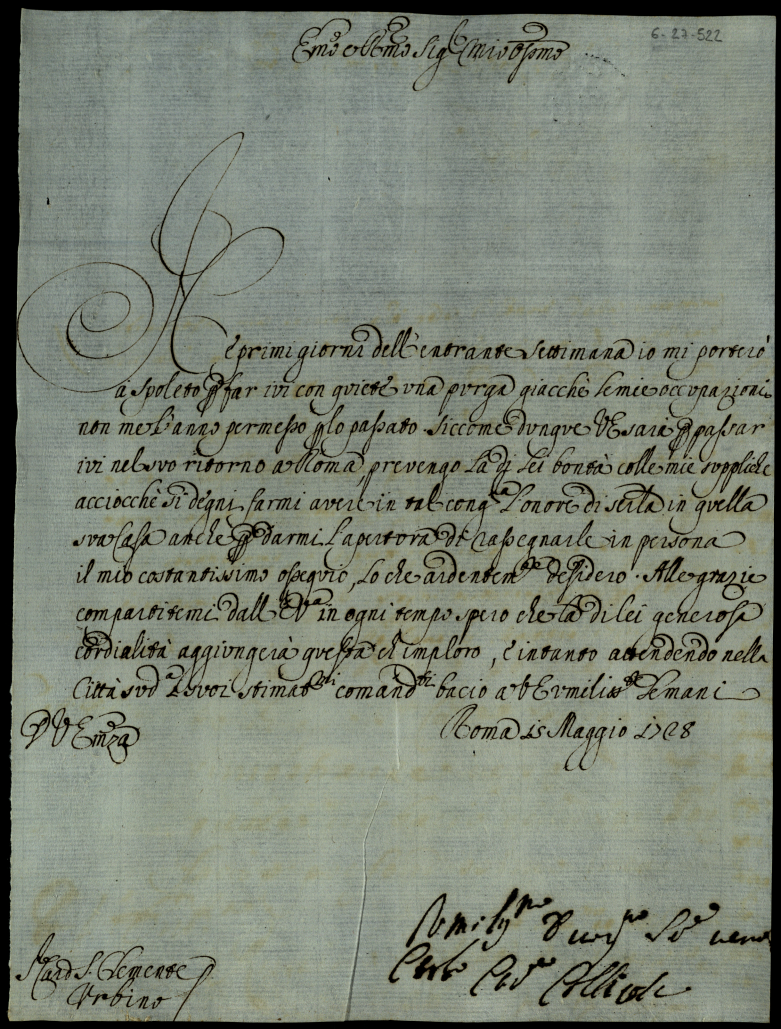 6-27-522
Emo e Rmo Sig.r mio Ossmo
Ne primi giorni dell'entrante settimana io mi porterò
a Spoleto p far ivi con quiete una purga giacchè le mie occupazioni
non me l'anno permesso p lo passato. Siccome dunque VE sarà p passar
ivi nel suo ritorno a Roma, prevengo la di lei bontà colle mie suppliche
acciocchè si degni farmi avere in tal cong.a l'onore di serla in quella
sua Casa anche p darmi l'apertura di rassegnarle in persona
il mio costantissimo ossequio, lo che ardentem.te desidero. Alle grazie
compartitemi dall' E.V.a in ogni tempo spero che la di lei generosa
cordialità aggiungerà questa ch'imploro, e intanto attendendo nella
Città sud.a i suoi stimat.mi comand.ti bacio a VE umiliss.te le mani
D VEmza
Roma 15 Maggio 1728
S.r Card S. Clemente
Urbino
Umilis.mo D Ser.re vero
Carlo Card.e Collicola